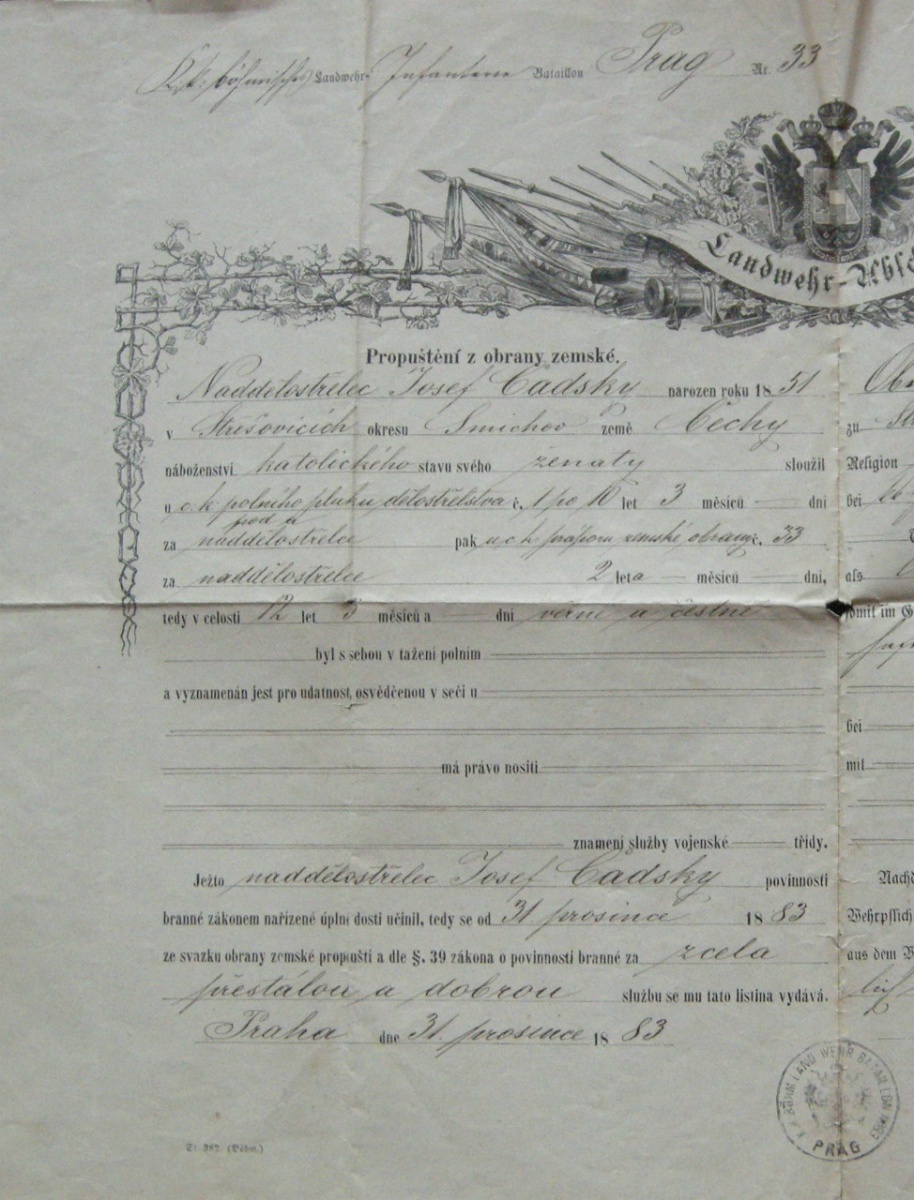 K.k. böhmisches Landwehr- Infanterie Bataillon Prag Nr. 33
Landwehr-Absc
Propuštění z obrany zemské.
Naddělostřelec Josef Čadsky narozen roku 1851
v Střešovicích okresu Smíchov země Čechy
náboženství katolického stavu svého ženatý sloužil
u c. k. polního pluku dělostřelstva č. 1 po 10 let 3 měsíců — dní
pod a
za naddělostřelce pak u c k práporu zemské obrany č. 33
za naddělostřelce 2 leta — měsíců — dní,
tedy v celosti 12 let 3 měsíců a — dní věrně a čestně
byl s sebou v tažení polním
a vyznamenán jest pro udatnost, osvědčenou v seči u
má právo nositi
znamení služby vojenské — třídy.
Ježto naddělostřelec Josef Čadsky povinnosti
branné zákonem nařízené úplně dosti učinil, tedy se od 31 prosince 1883
ze svazku obrany zemské propouští a dle §. 39 zákona o povinnosti branné za zcela
přestálou a dobrou službu se mu tato listina vydává.
Praha dne 31. prosince 1883
zu
Religion
bei
als
somit im G
bei
mit
Nachd
Wehrpflich
aus dem V
K.K. BÖHM. LANDWEHR BATAILLON No 33
PRAG